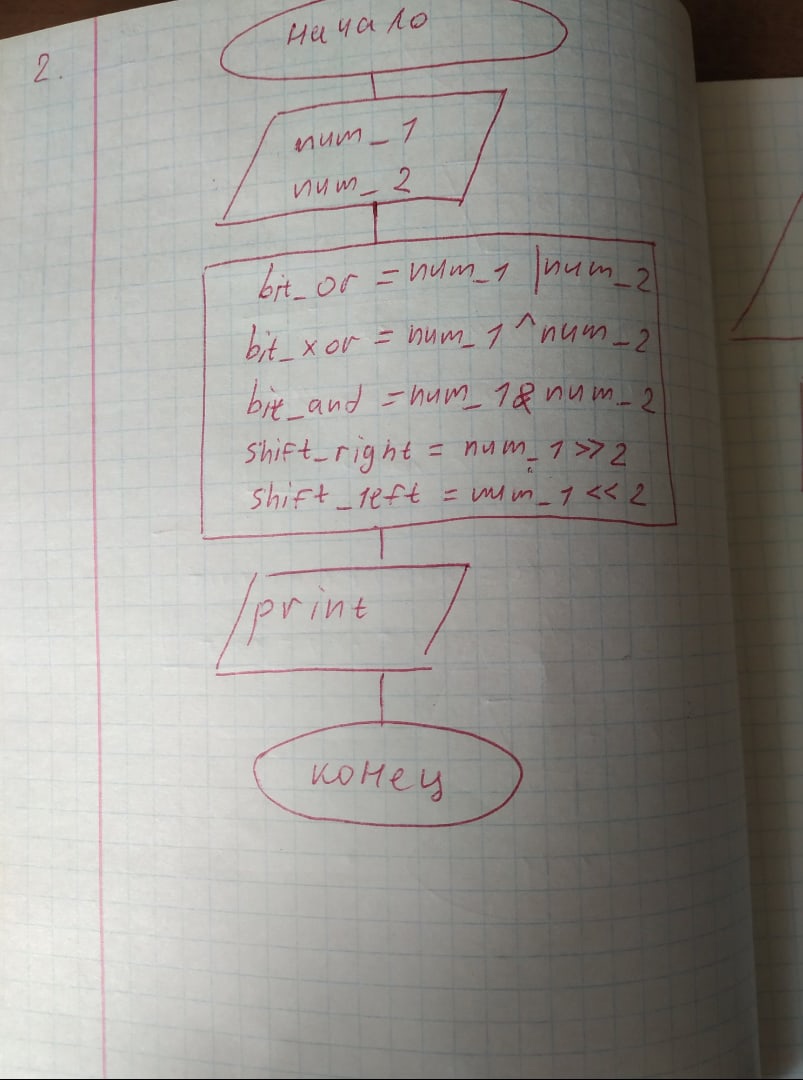 2.
начало
num_1
num_2
bit_or = num_1 | num_2
bit_xor = num_1 ^ num_2
bit_and = num_1 & num_2
shift_right = num_1 >> 2
shift_left = num_1 << 2
print
конец